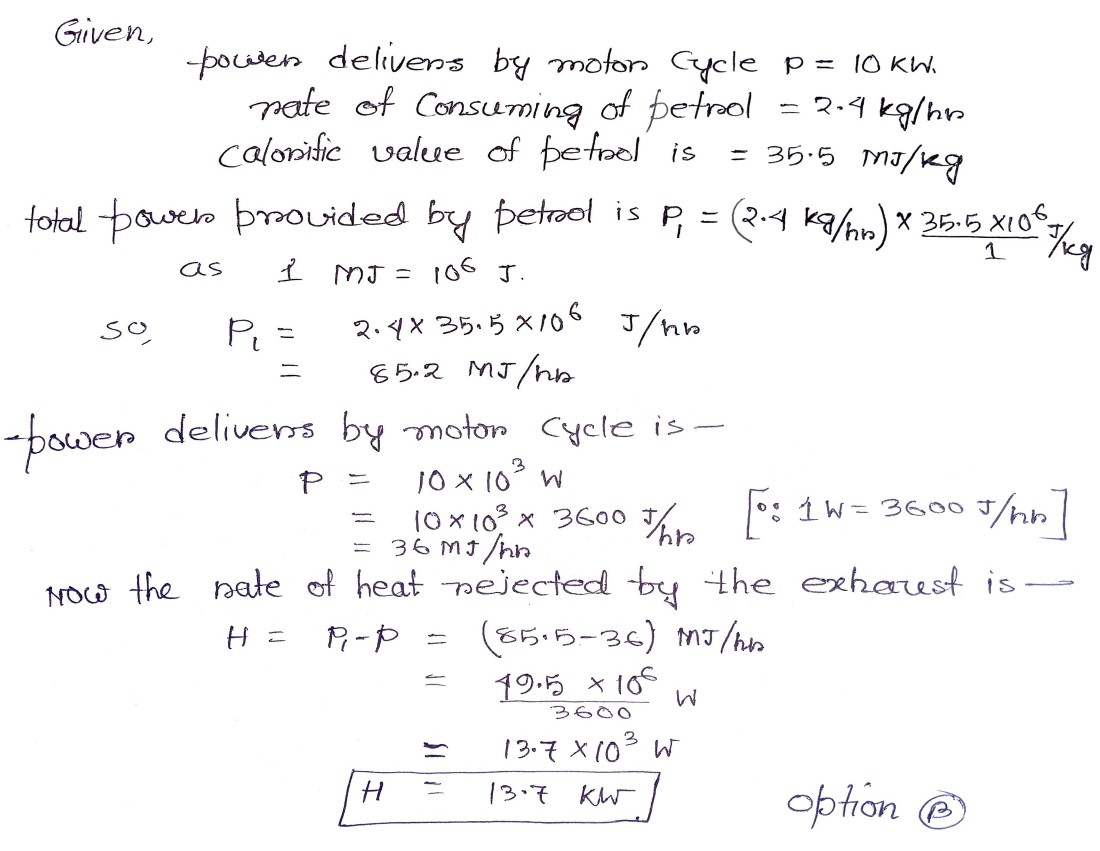 Given,
power delivers by motor Cycle P = 10 KW.
rate of Consuming of petrol = 2.4 kg/hr
Calorific value of petrol is = 35.5 MJ/kg
total power provided by petrol is P₁ = (2.4 kg/hr) × 35.5 × 10⁶/1 J/kg
as 1 MJ = 10⁶ J.
SO, P₁ = 2.4 × 35.5 × 10⁶ J/hr
= 85.2 MJ/hr
power delivers by motor cycle is –
P = 10 × 10³ W
= 10 × 10³ × 3600 J/hr [∵ 1 W = 3600 J/hr]
= 36 MJ/hr
NOW the rate of heat rejected by the exhaust is –
H = P₁ - P = (85.5-36) MJ/hr
= 49.5 × 10⁶/3600 W
= 13.7 × 10³ W
H = 13.7 KW.
option B